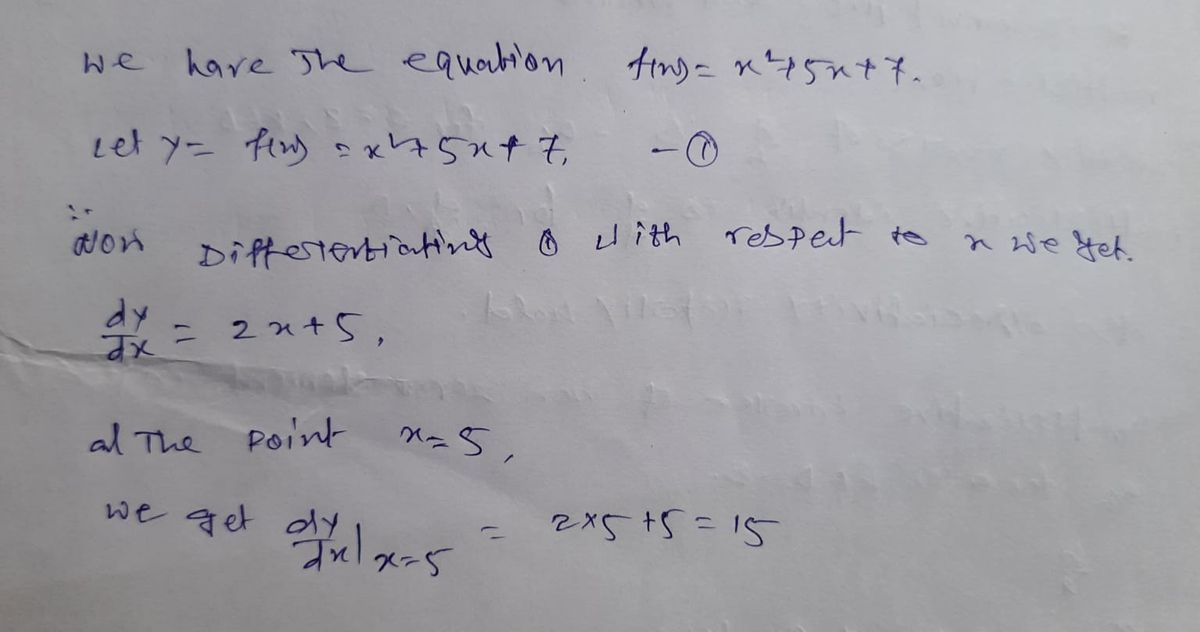 we have The equation. f(x) = x²+5x+7.
Let y = f(x) = x²+5x+7, - ①
∴ Now Differentiating ① with respect to x we get.
dy/dx = 2x+5,
at The point x=5,
we get dy/dx|x=5 = 2×5+5 = 15